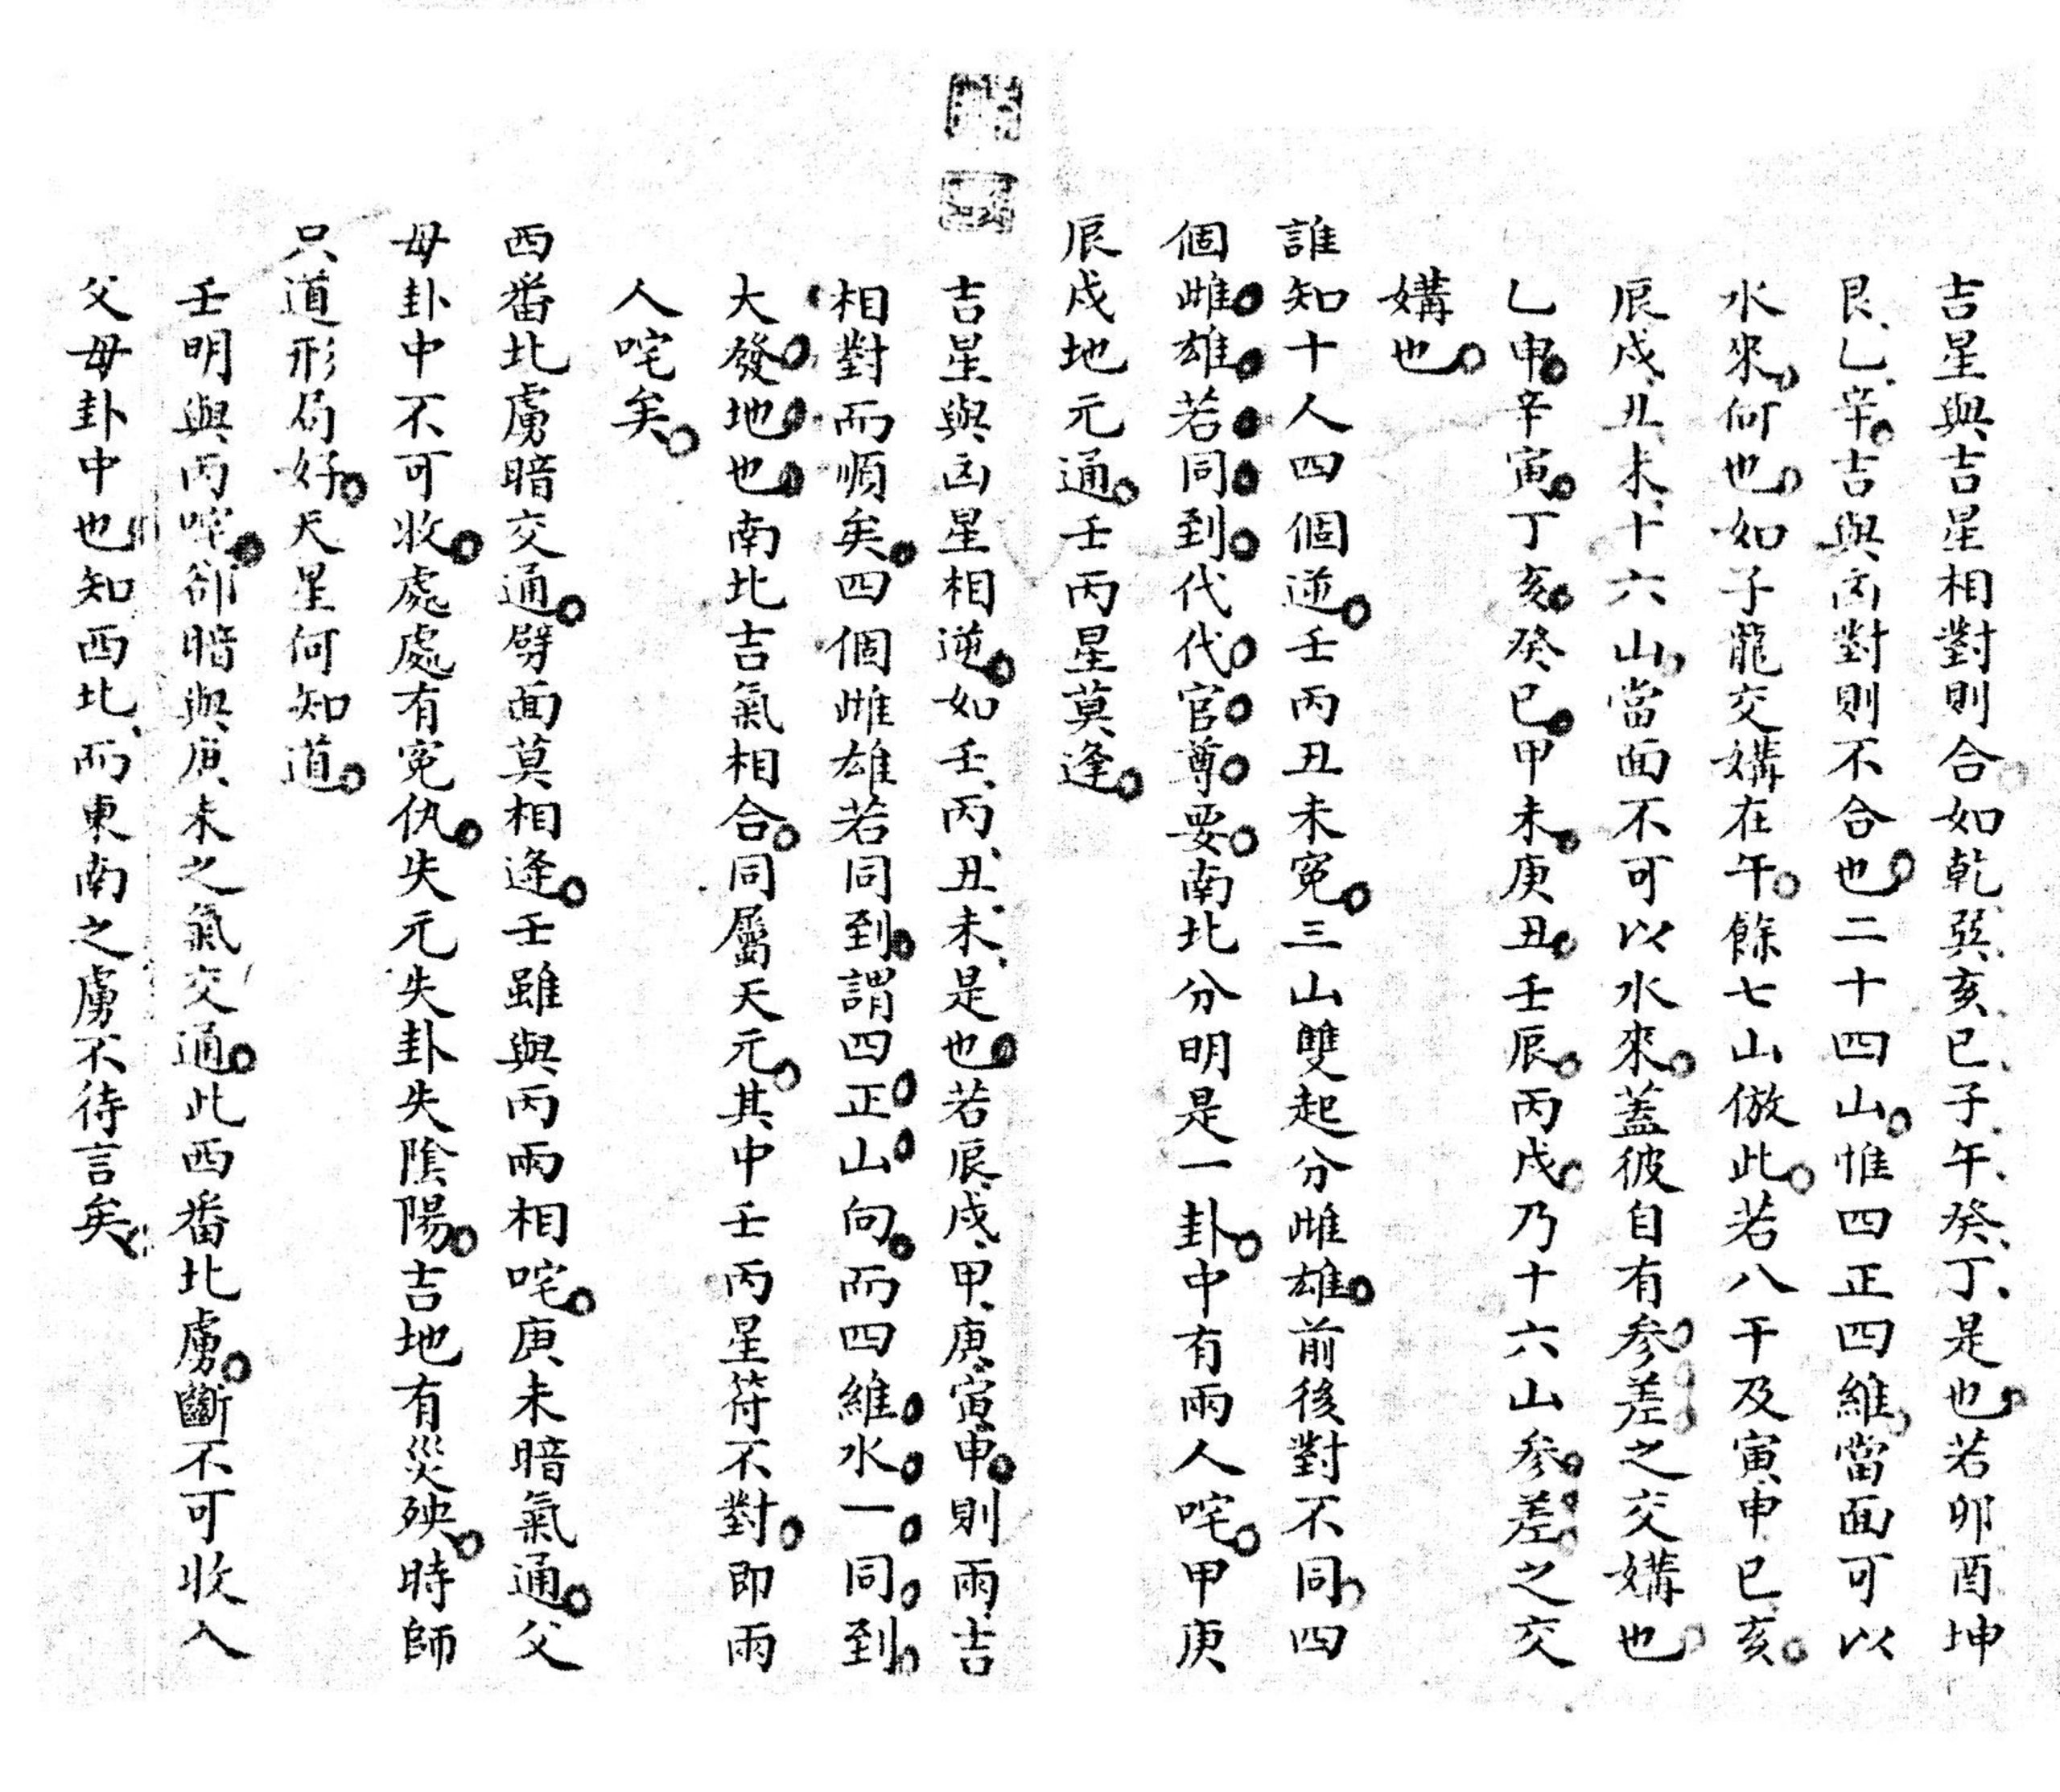 吉星與吉星相對則合如乾巽亥巳子午癸丁是也若卯酉坤
艮乙辛吉與凶對則不合也二十四山惟四正四維當面可以
水來何也如子龍交媾在午餘七山倣此若八干及寅申巳亥
辰戌丑未十六山當面不可以水來蓋彼自有參差之交媾也
乙申辛寅丁亥癸巳甲未庚丑壬辰丙戌乃十六山參差之交
媾也
誰知十人四個逆壬丙丑未冤三山雙起分雌雄前後對不同四
個雌雄若同到代代官尊要南北分明是一卦中有兩人咤甲庚
辰戌地元通壬丙星莫逢
吉星與凶星相逆如壬丙丑未是也若辰戌甲庚寅申則兩吉
相對而順矣四個雌雄若同到謂四正山向而四維水一同到
大發地也南北吉氣相合同屬天元其中壬丙星符不對即兩
人咤矣
西番北虜暗交通劈面莫相逢壬雖與丙兩相咤庚未暗氣通父
母卦中不可收處處有冤仇失元失卦失陰陽吉地有災殃時師
只道形局好天星何知道
壬明與丙咤卻暗與庚未之氣交通此西番北虜斷不可收入
父母卦中也知西北而東南之虜不待言矣